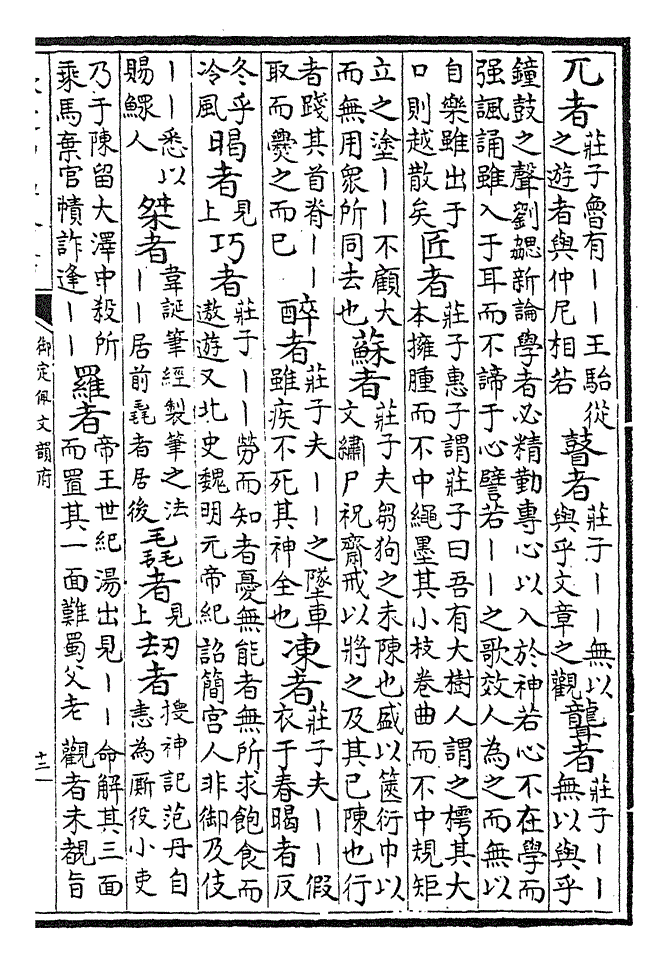 兀者莊子魯有丨丨王駘從之遊者與仲尼相若瞽者莊子丨丨無以與乎文章之觀聾者莊子丨丨無以與乎
鐘鼓之聲劉勰新論學者必精勤專心以入於神若心不在學而强諷誦雖入于耳而不諦于心譬若丨丨之歌效人為之而無以
自樂雖出于口則越散矣匠者莊子惠子謂莊子曰吾有大樹人謂之樗其大本擁腫而不中繩墨其小枝卷曲而不中規矩
立之塗丨丨不顧大而無用衆所同去也蘇者莊子夫芻狗之未陳也盛以篋衍巾以文繡尸祝齋戒以將之及其已陳也行
者踐其首脊丨丨取而爨之而已醉者莊子夫丨丨之墜車雖疾不死其神全也凍者莊子夫丨丨假衣于春暍者反
冬乎冷風暍者見上巧者莊子丨丨勞而知者憂無能者無所求飽食而遨遊又北史魏明元帝紀詔簡宮人非御及伎
丨丨悉以賜鰥人桀者韋誕筆經製筆之法丨丨居前毳者居後毳者見上刼者搜神記范丹自恚為厮役小吏
乃于陳留大澤中殺所乘馬棄官幘詐逢丨丨羅者帝王世紀湯出見丨丨命解其三面而置其一面難蜀父老觀者未覩旨
御定佩文韻府